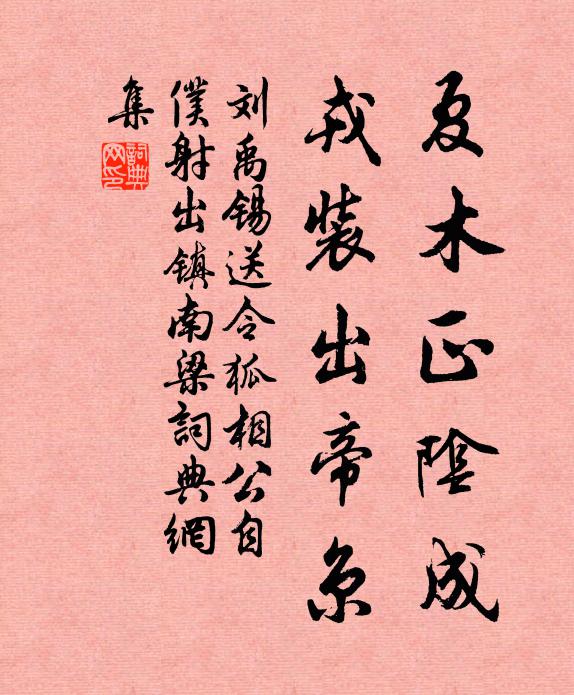 夏木正阴成
戎装出帝京
刘禹锡送令狐相公自
僕射出镇南梁詞典網
集
詞典網印